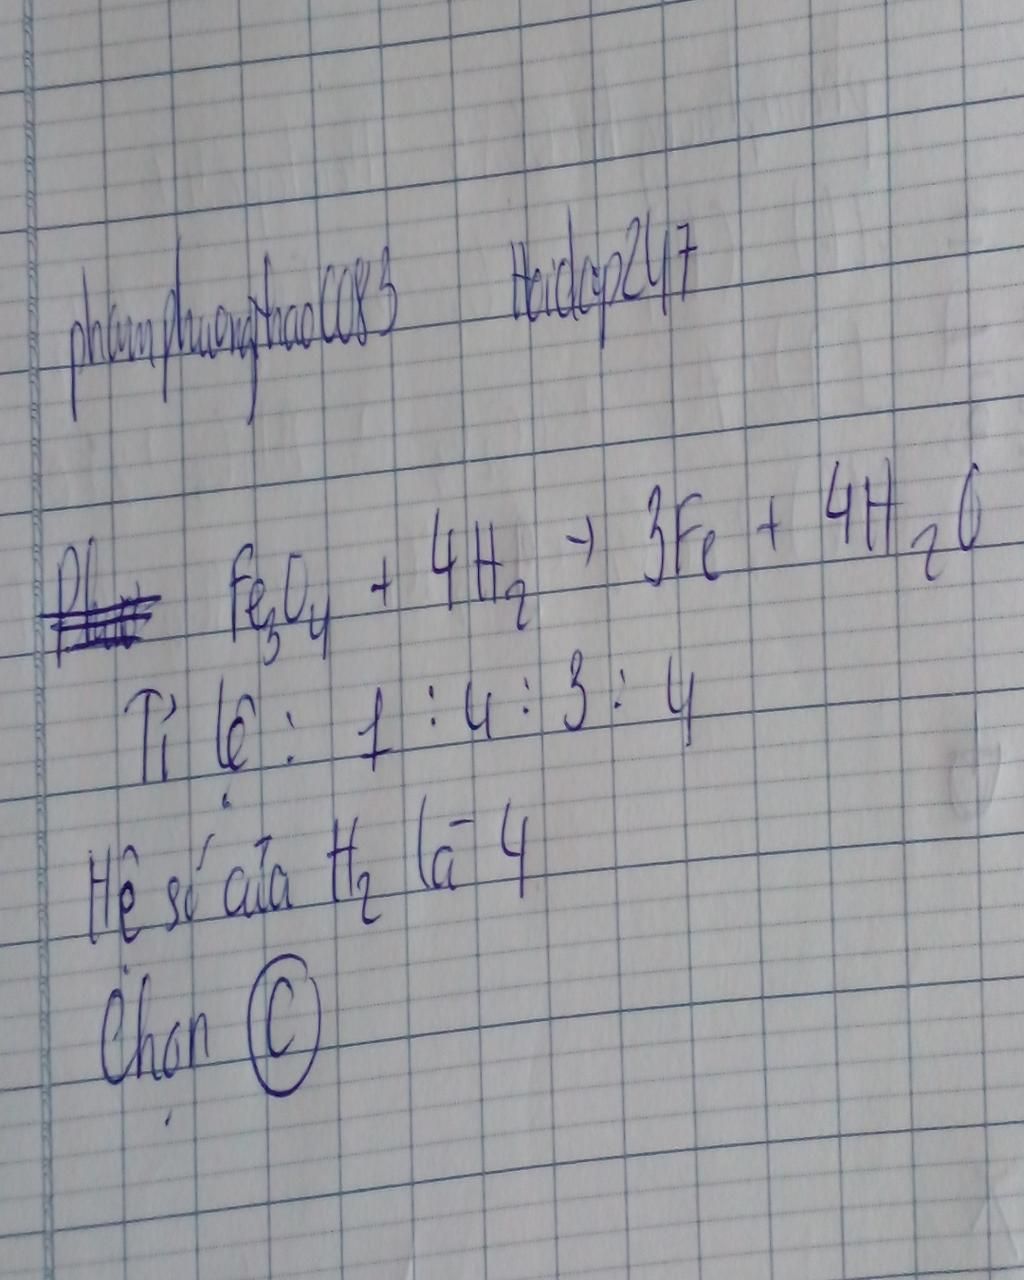 phamphuongthao10083 Hoidap247
Fe₃O₄ + 4H₂ → 3Fe + 4H₂O
Tỉ lệ : 1 : 4 : 3 : 4
Hệ số của H₂ là 4
Chọn C